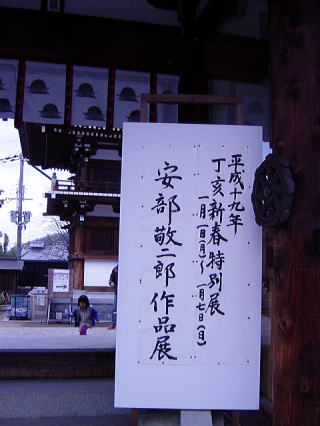 平成十九年
丁亥新春特別展
一月一日(月)〜一月七日(日)
安部敬二郎作品展